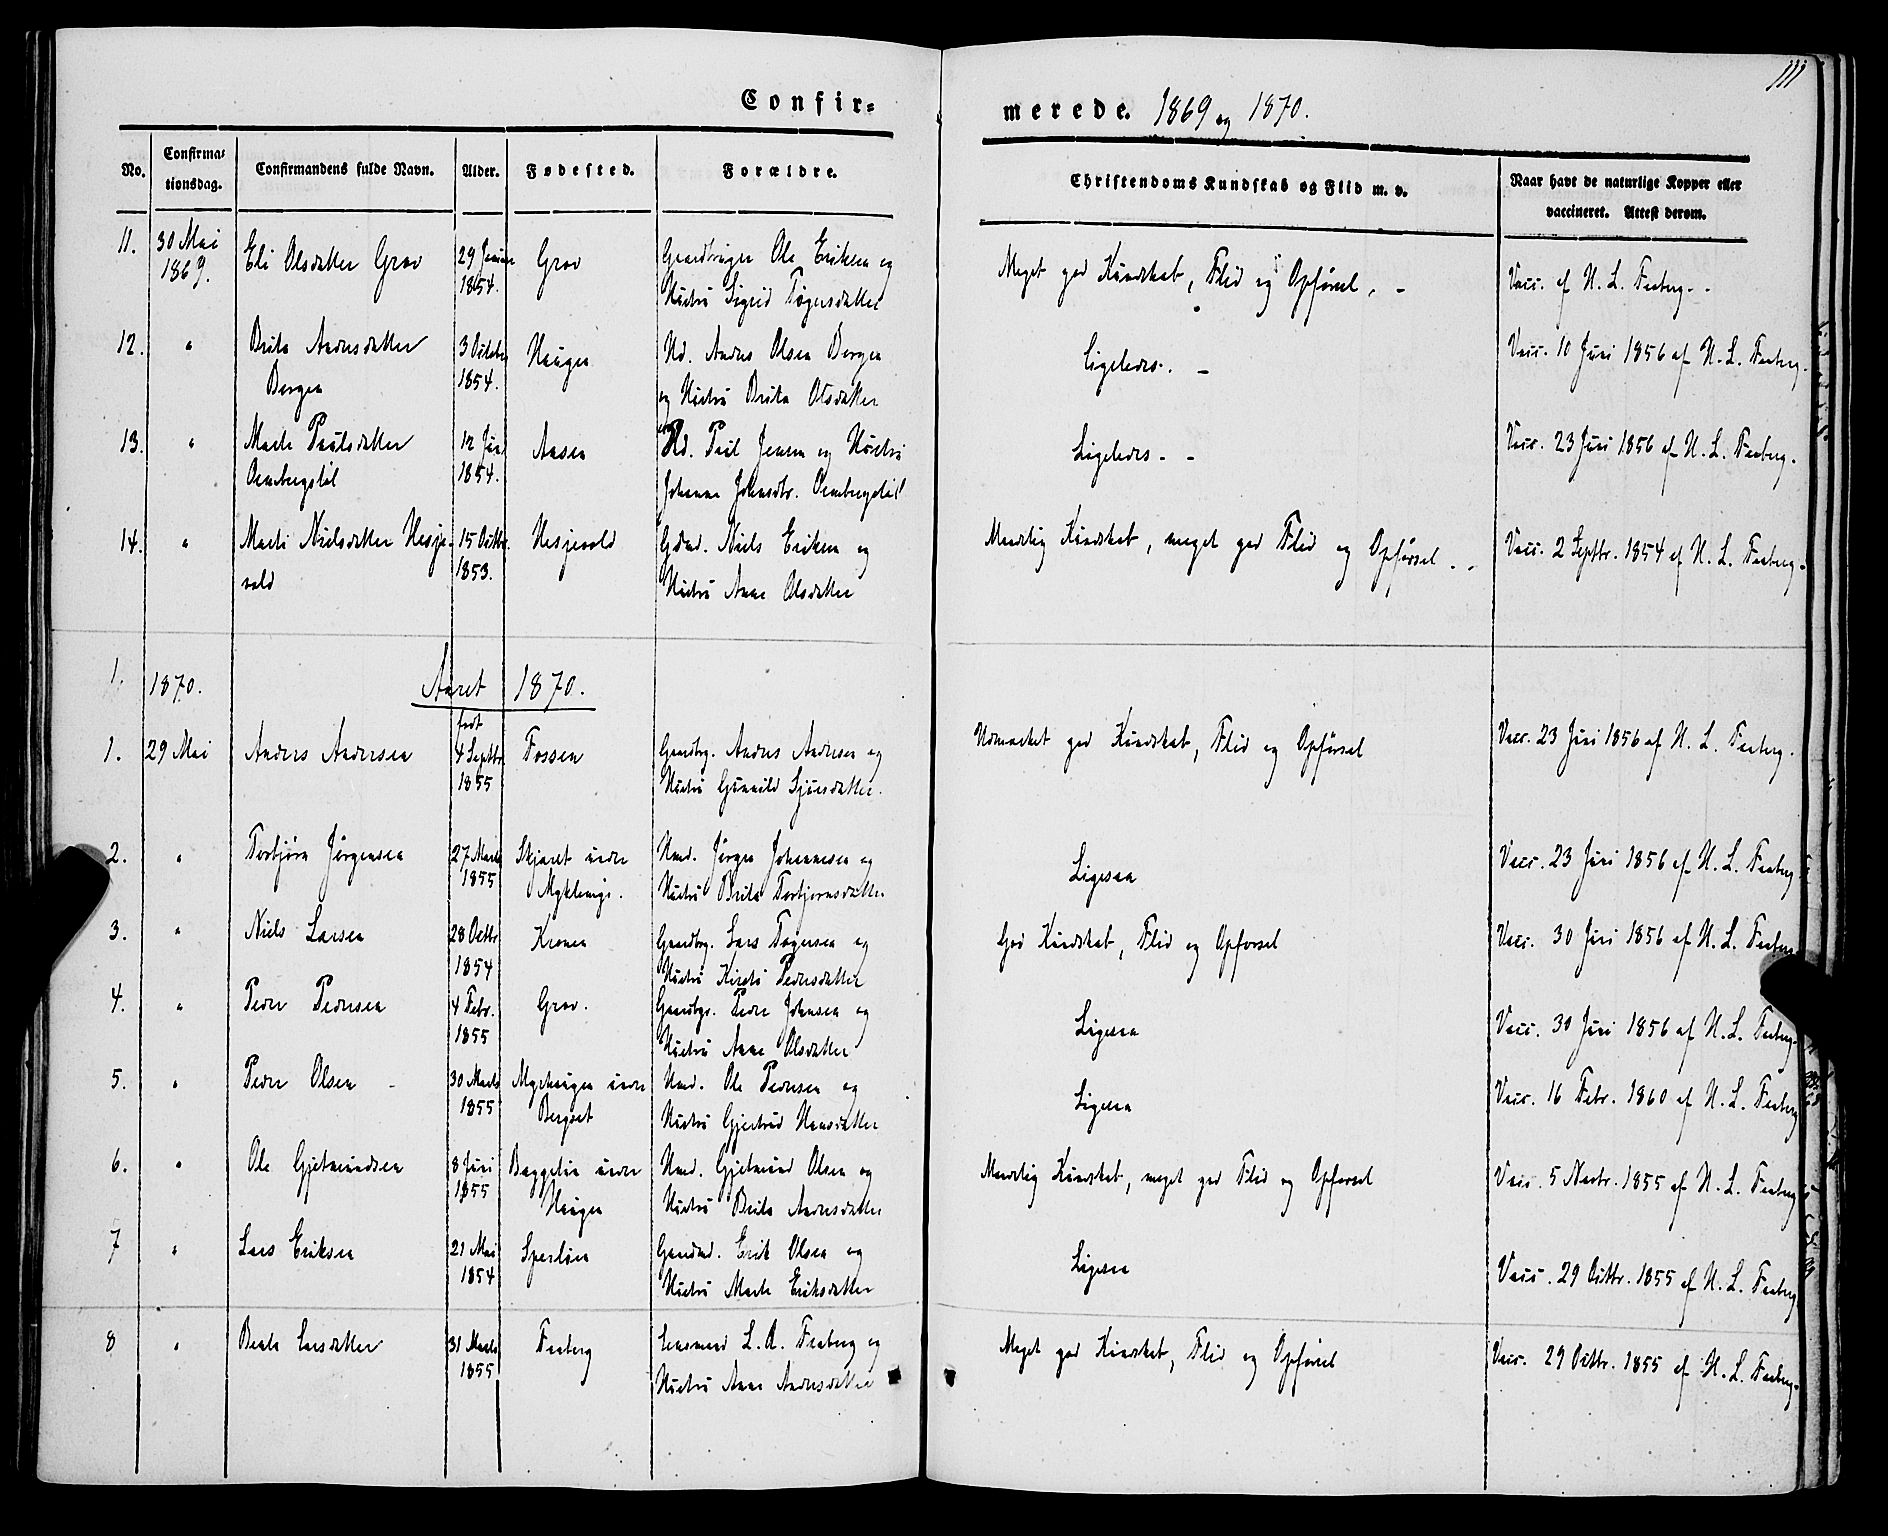 111
Confir-
merede. 1869 og 1870.
No.
Confirma-
tionsdag.
Confirmandens fulde Navn.
Alder.
Fødested.
Forældre.
Christendoms Kundskab og Flid m. v.
Naar havt de naturlige Kopper eller
vaccineret. Attest derom.
11. 30 Mai Eli Olsdatter Grov 29 Grov Ole Eriksen og Meget god Kundskab, Flid og Opførsel. Vacc. af H. L. Faaberg.
1869. 1854. Hustru Sigrid Tøgersdatter
12. " Brita Andersdatter 3 October Haugen Hd. Anders Olsen Bergen Ligeledes. Vacc. 10 Juni 1856 af H. L. Faaberg.
Bergen 1854. og Hustru Brita Olsdatter
13. " Marte Paulsdatter 12 Aasen Paul Jensen og Hustru Ligeledes Vacc. 23 Juni 1856 af H. L. Faaberg.
1854. Johanne
14. " Marti Nielsdatter Hesje- 15 Octbr. Hesjevold Gdmd. Niels Eriksen og Maadelig Kundskab, meget god Flid og Opførsel. Vacc. 2 Septbr. 1854 af H. L. Faaberg.
vold 1853. Hustru Anne Olsdatter
1. 1870. Aaret 1870.
født
1. 29 Mai Anders Andersen 4 Septbr Fossen Gaardbg. Anders Andersen og Udmærket god Kundskab, Flid og Opførsel Vacc. 23 Juni 1856 af H. L. Faaberg.
1855 Hustru Gunnild Sjursdatter.
2. " Torbjørn Jørgensen 27 Marts Skjæret under Hmd. Jørgen Johannesen og Ligesaa Vacc. 23 Juni 1856 af H. L. Faaberg
1855 Myklemyr. Hustru Brita Torbjørnsdatter
3. " Niels Larsen 28 Octbr Kronen Gaardbg. Lars Tøgersen og God Kundskab, Flid og Opførsel Vacc. 30 Juni 1856 af H. L. Faaberg
1854 Hustru Kirsti Pedersdatter
4. " Peder Pedersen 4 Febr. Grov. Gaardbgr. Peder Johnsen og Ligesaa Vacc. 30 Juni 1856 af H. L. Faaberg.
1855 Hustru Anne Olsdatter
5. " Peder Olsen 30 Marts Myrhaugen under Hmd. Ole Pedersen og Ligesaa Vacc. 16 Febr. 1860 af H. L. Faaberg
1855 Bergset Hustru Gjertrud Hansdatter
6. " Ole Gjetmundsen 8 Juni under Hmd. Gjetmund Olsen og Maadelig Kundskab, meget god Flid og Opførsel Vacc. 5 Novbr. 1855 af H. L. Faaberg
1855 Haugen Hustru Brita Andersdatter
7 " Lars Eriksen 21 Mai Sperleen Gaardmd. Erik Olsen og Ligesaa Vacc. 29 Octbr. 1855 af H. L. Faaberg
1854 Hustru Marte Eriksdatter
8 " Beate Larsdatter 31 Marts Faaberg Lensmand L. A. Faaberg og Meget god Kundskab, Flid og Opførsel Vacc. 29 Octbr. 1855 af H. L. Faaberg.
1855 Hustru Anne Andersdatter